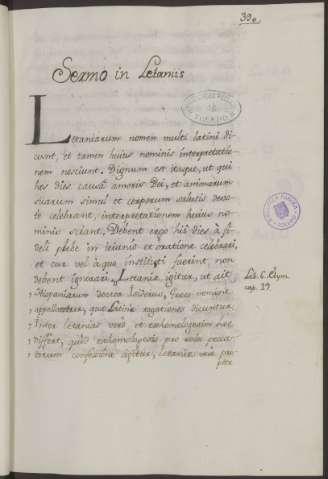 39.
Sermo in Letaniis
Letaniarum nomen multi latini di
cunt, et tamen huius nominis interpretatio
nem nesciunt. Dignum est itaque, ut qui
hos dies causa amoris Dei, et animarum
suarum simul et corporum salutis devo
te celebrant, interpretationem huius no
minis sciant. Debent ergo hi dies à fi
deli plebe in letaniis et oratione celebrari,
et cur vel à quo instituti fuerint non
debent ignorari. Letaniæ igitur, ut ait
Hispaniarum doctor Isidorus, Græco nomine
appellantur, quæ Latinè rogationes dicuntur.
Inter letanias vero et exhomologesim hoc
differt, quod exhomologesis pro sola pecca
torum confessione agitur, letaniæ verò pro
pter
Lib. 6. Etym.
cap. 19.